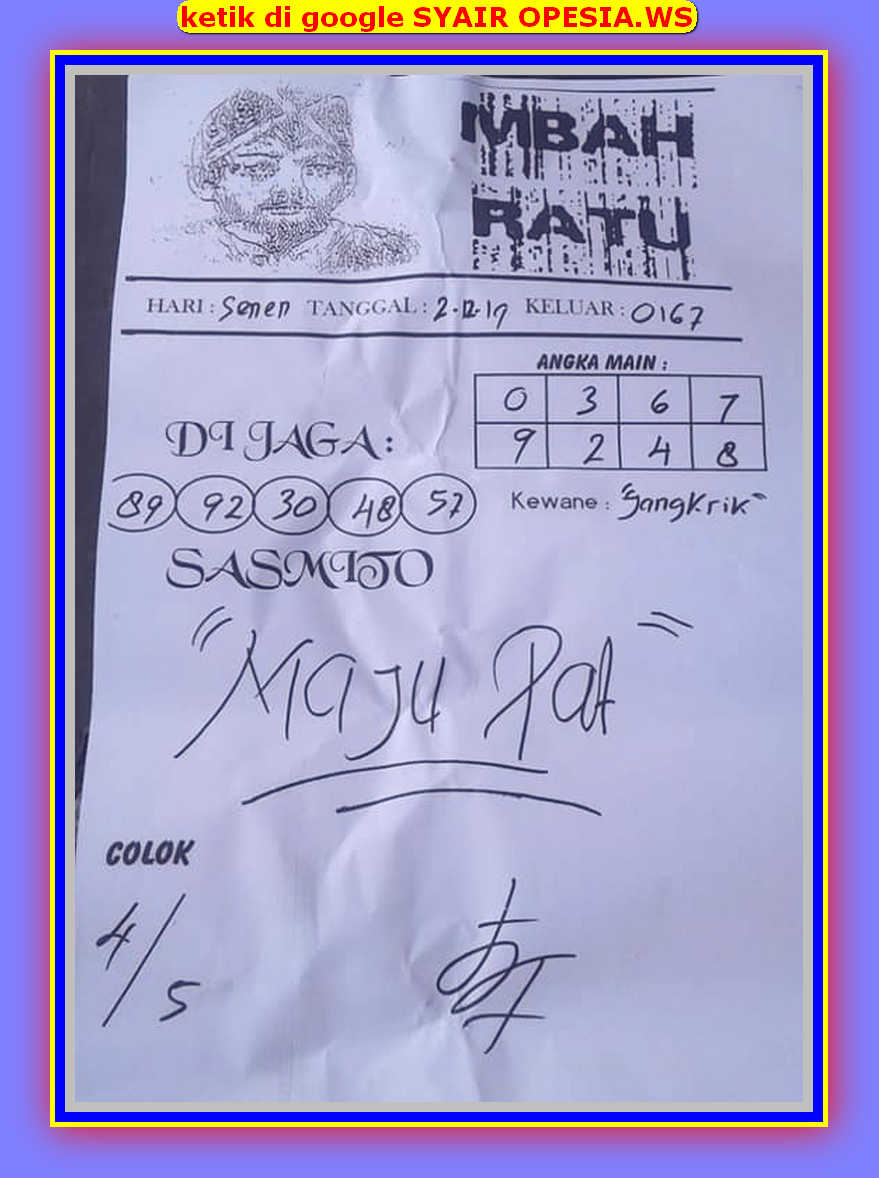 ketik di google SYAIR OPESIA.WS
MBAH
RATU
HARI : Senen TANGGAL : 2-12-19 KELUAR : 0167
ANGKA MAIN :
0 3 6 7
9 2 4 8
DI JAGA :
89 92 30 48 57
Kewane : "Jangkrik"
SASMITO
"Maju Pat"
COLOK
4/5